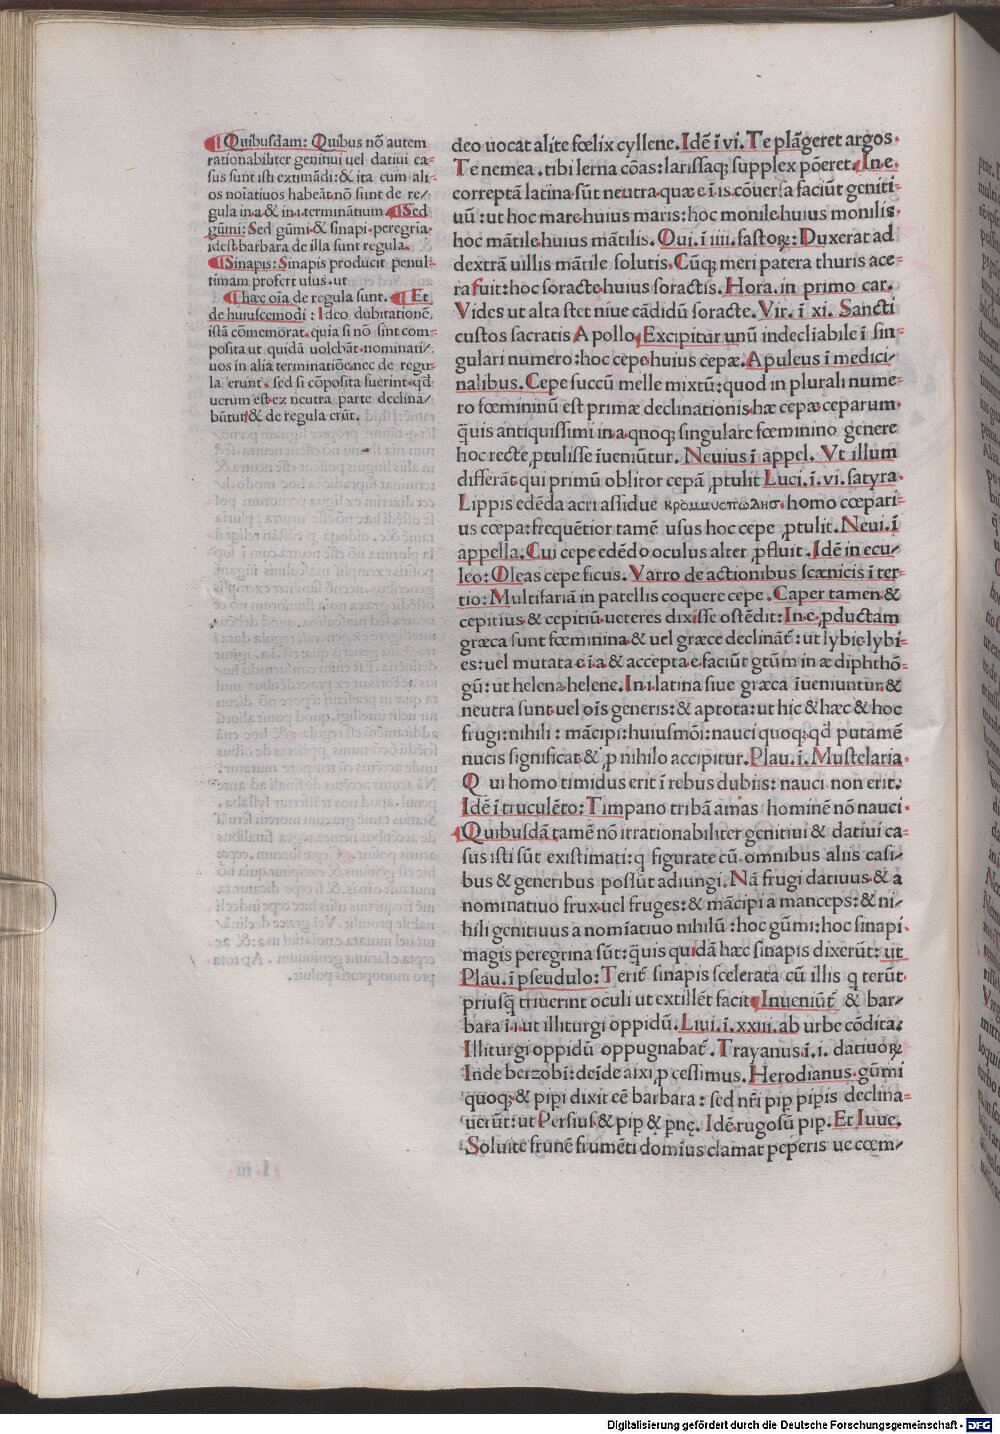 ¶Quibusdam: Quibus nõ autem
rationabiliter genitiui uel datiui ca=
sus sunt isti extimãdi: & ita cum ali-
os noĩatiuos habeãt nõ sunt de re/
gula in a & in i terminãtium. ¶Sed
gũmi: Sed gũmi & sinapi peregria
idest barbara de illa sunt regula.
¶Sinapis: Sinapis producit penul-
timam profert usus. ut
¶hæc oĩa de regula sunt. ¶Et
de huiuscemodi: Ideo dubitationẽ
istã cõmemorat. quia si nõ sint com-
posita ut quidã uolebãt nominati/
uos in alia terminatiõe nec de regu-
la erunt. sed si cõposita fuerint qđ
uerum est ex neutra parte declina/
būtur & de regula erũt.
deo uocat alite fœlix cyllene. Idẽ ĩ vi. Te plãgeret argos.
Te nemea. tibi lerna cõas: larissaq; supplex põeret. In.e.
correptã latina sũt neutra quæ e ĩ is cõuersa faciũt geniti-
uũ: ut hoc mare huius maris: hoc monile huius monilis.
hoc mãtile huius mãtilis. Oui. ĩ iiii. fastoꝝ: Duxerat ad
dextrã uillis mãtile solutis. Cũq; meri patera thuris ace-
ra fuit: hoc soracte huius soractis. Hora. in primo car.
Vides ut alta stet niue cãdidũ soracte. Vir. ĩ xi. Sancti
custos sacratis Apollo. Excipitur unũ indecliabile ĩ sin-
gulari numero: hoc cepe huius cepæ. Apuleus ĩ medici-
nalibus. Cepe succũ melle mixtũ: quod in plurali nume-
ro fœmininũ est primæ declinationis hæ cepæ ceparum.
q̃uis antiquissimi in.a. qnoq; singulare fœminino genere
hoc recte ꝓtulisse ĩueniũtur. Neuius ĩ appel. Vt illum
differãt qui primũ oblitor cepã ꝓtulit Luci. ĩ. vi. satyra.
Lippis edẽda acri assidue κρομμυσπολησ. homo cœpari-
us cœpa: frequẽtior tamẽ usus hoc cepe ꝓtulit. Neui. ĩ
appella. Cui cepe edẽdo oculus alter ꝓfluit. Idẽ in ecu/
leo: Oleas cepe ficus. Varro de actionibus scænicis ĩ ter-
tio: Multifariã in patellis coquere cepe. Caper tamen &
cepitius & cepitiũ ueteres dixisse ostẽdit: In.e. ꝓductam
græca sunt fœminina & uel græce declinãt̃: ut lybie lybi-
es: uel mutata e i a & accepta e faciũt gtũm in æ diphthõ-
gũ: ut helena helene. In.i. latina siue græca ĩueniuntur &
neutra sunt uel oĩs generis: & aptota: ut hic & hæc & hoc
frugi: nihili: mãcipi: huiusmõi: nauci quoq; qđ putamẽ
nucis significat & ꝓ nihilo accipitur. Plau. ĩ. Mustelaria.
Q ui homo timidus erit ĩ rebus dubiis: nauci non erit.
Idẽ ĩ truculẽto: Timpano tribã amas hominẽ nõ nauci.
¶Quibusdã tamẽ nõ irrationabiliter genitiui & datiui ca-
sus isti sũt existimati: q figurate cũ omnibus aliis casi/
bus & generibus possũt adiungi. Nã frugi datiuus & a
nominatiuo frux uel fruges: & mãcipi a manceps: & ni/
hili genitiuus a nomĩatiuo nihilũ: hoc gũmi: hoc sinapi.
magis peregrina sũt: q̃uis quidã hæc sinapis dixerũt: ut
Plau. ĩ pseudulo: Terit̃ sinapis scelerata cũ illis q terũt.
priusq̃ triuerint oculi ut extillẽt facit. Inueniũt̃ & bar/
bara i.i. ut illiturgi oppidũ. Liui. ĩ. xxiii. ab urbe cõdita.
Illiturgi oppidũ oppugnabat̃. Trayanus. ĩ. i. datiuoꝝ
Inde berzobĩ: deĩde aixi ꝓcessimus. Herodianus gũmi
quoq; & pip̱i dixit eẽ barbara: sed nr̃i pip̱ pip̱is declina-
uerũt: ut Persius & pip̱ & p̱nę. Idẽ rugosũ pip̱. Et Iuue.
Soluite frunẽ frumẽti domĩus clamat peperis ue cœm/
Digitalisierung gefördert durch die Deutsche Forschungsgemeinschaft - DFG